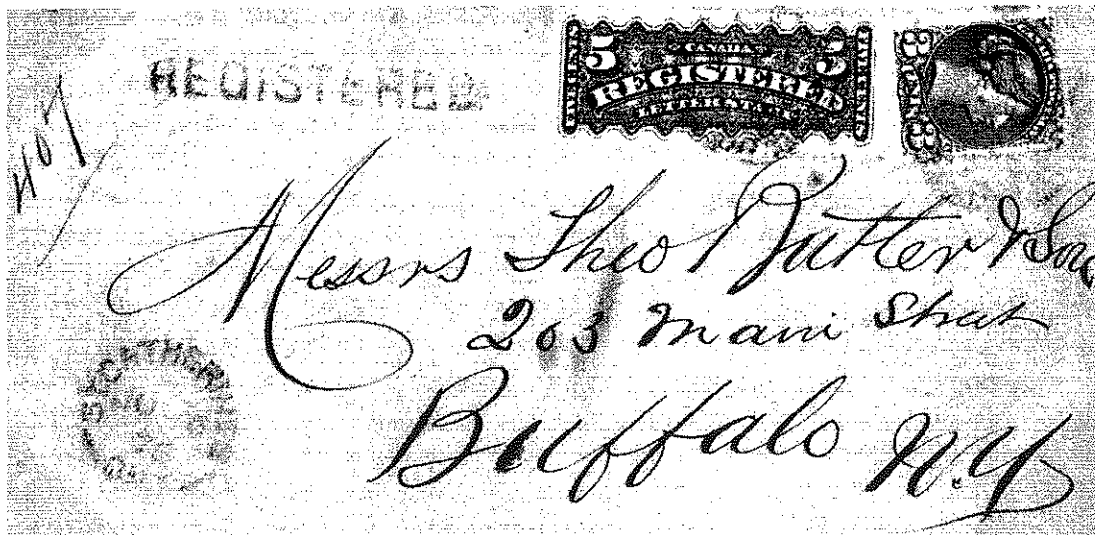 REGISTERED
5 CANADA 5
REGISTERED
LETTER STAMP
3 CENTS 3
407
Messrs Theo Butler & Sons
203 Main Street
Buffalo N.Y